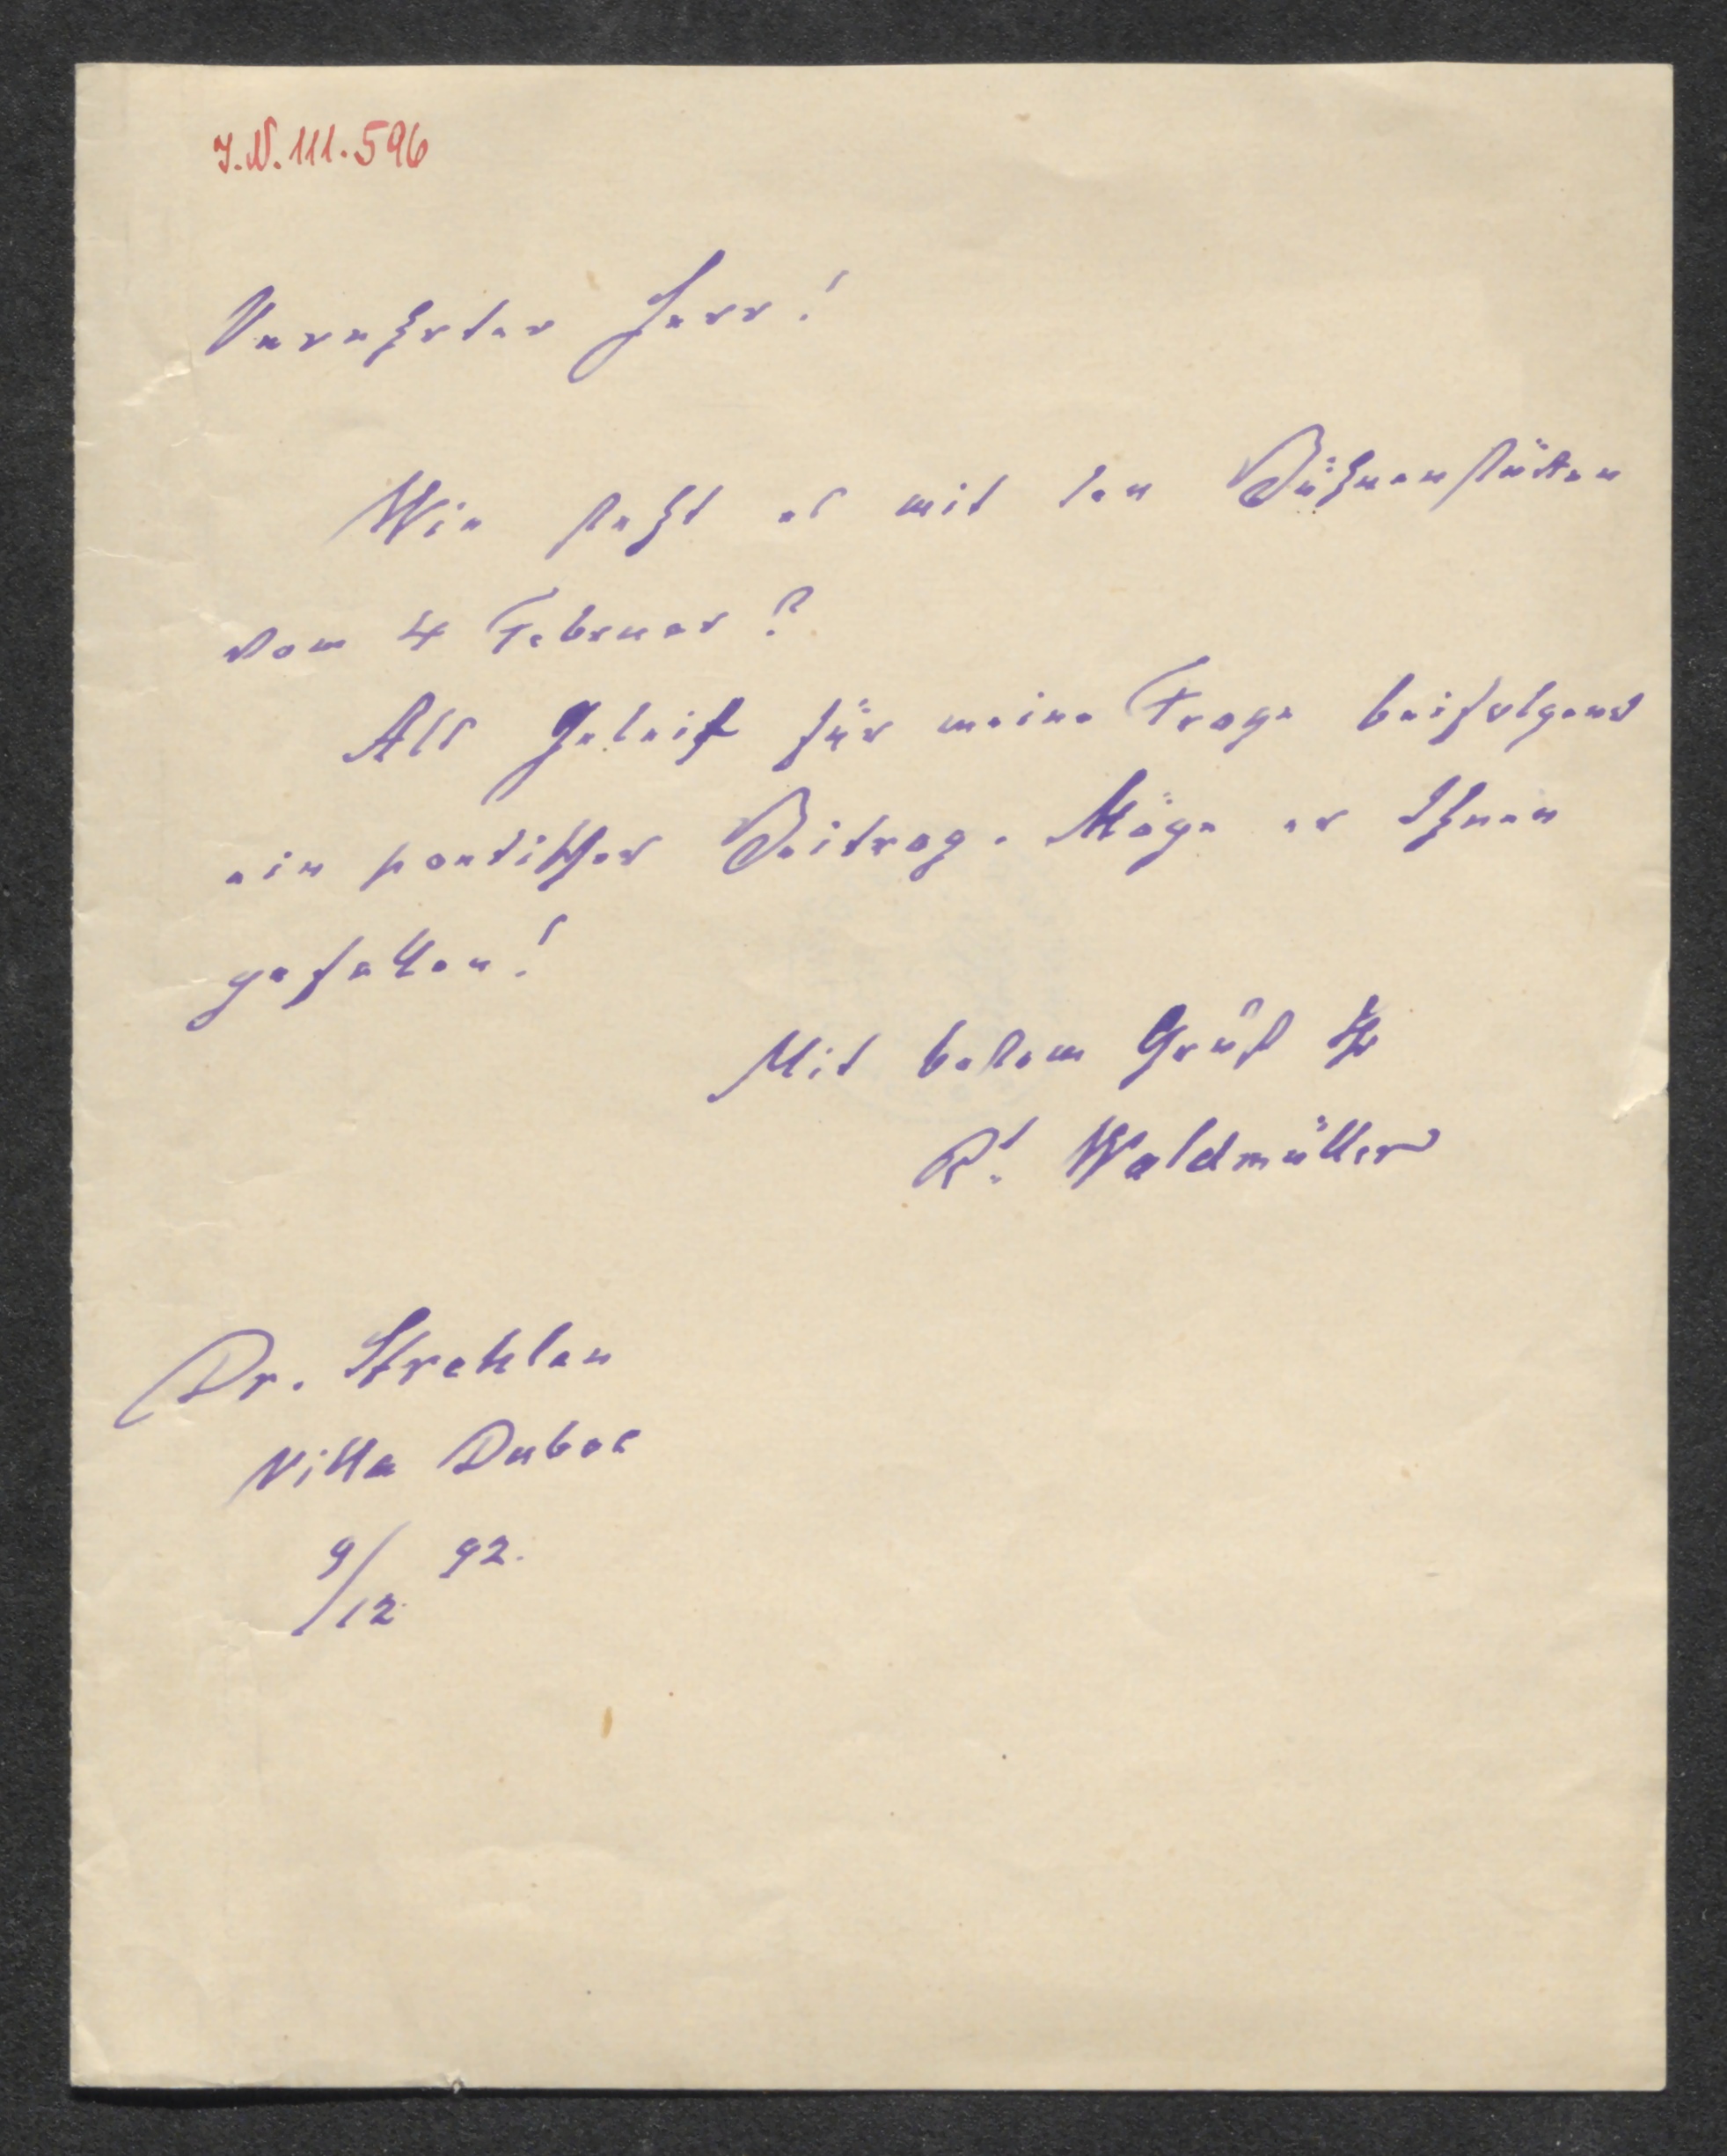 J.N. 111.596
Verehrter Herr!
Wie steht es mit den
vom 4 Februar?
Als Geleit für meine Frage beifolgend
ein poetischer Beitrag. Möge er Ihnen
gefallen!
Mit bestem Gruß
Rt Waldmüller
Dr. Strehlen
Villa Duboc
9/12 92.